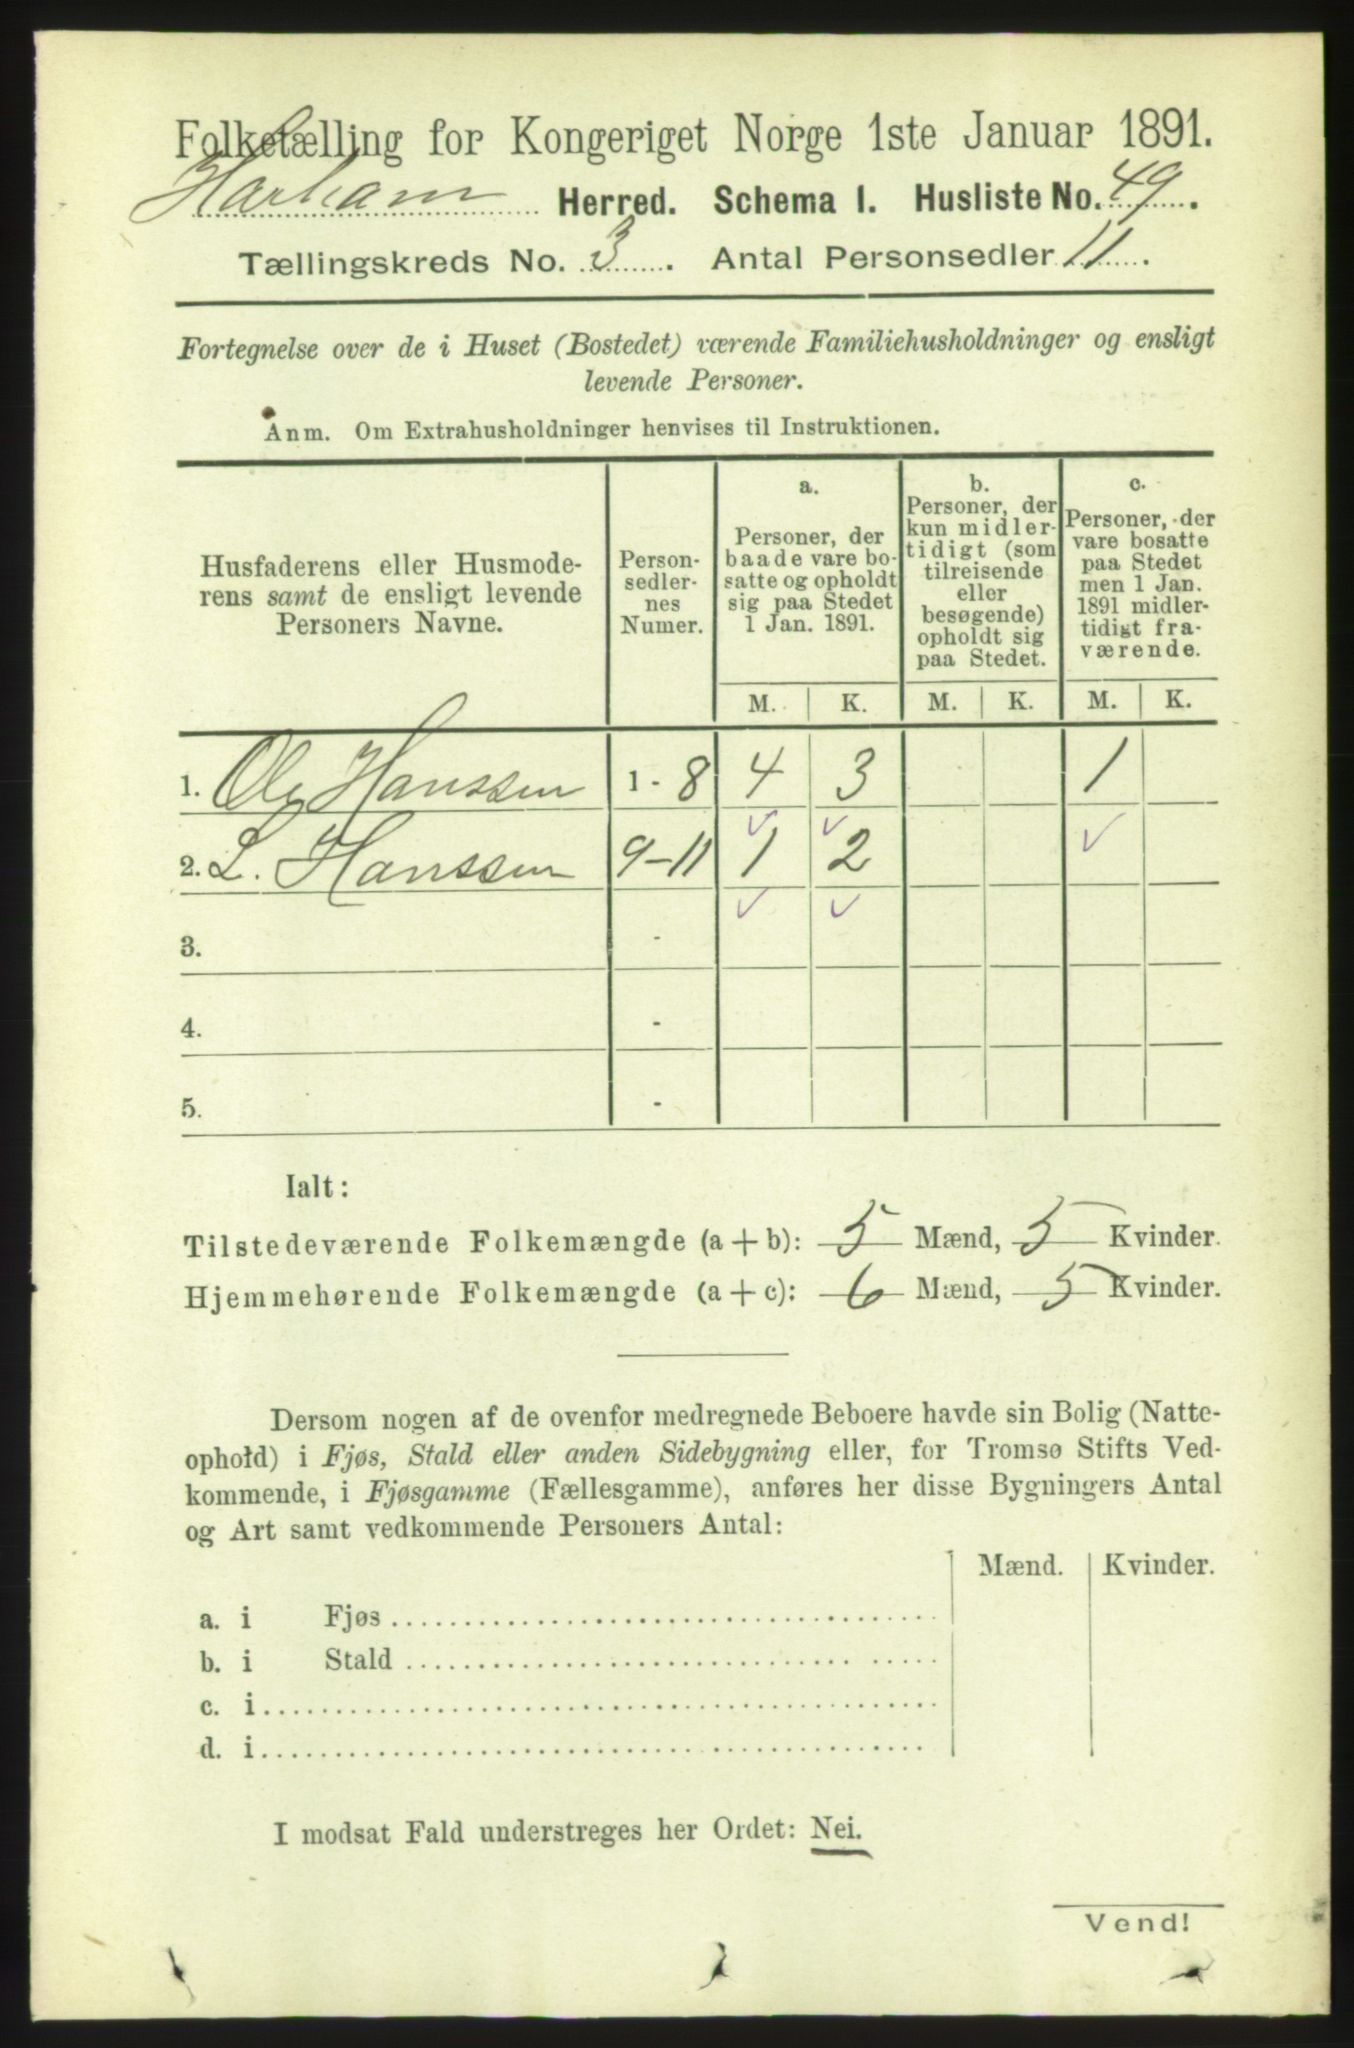 Folketælling for Kongeriget Norge 1ste Januar 1891.
Harham Herred. Schema I. Husliste No. 49.
Tællingskreds No. 3. Antal Personsedler 11.
Fortegnelse over de i Huset (Bostedet) værende Familiehusholdninger og ensligt
levende Personer.
Anm. Om Extrahusholdninger henvises til Instruktionen.
Husfaderens eller Husmode-
rens samt de ensligt levende
Personers Navne.
Person-
sedler-
nes
Numer.
a.
Personer, der
baade vare bo-
satte og opholdt
sig paa Stedet
1 Jan. 1891.
b.
Personer, der
kun midler-
tidigt (som
tilreisende
eller
besøgende)
opholdt sig
paa Stedet.
c.
Personer, der
vare bosatte
paa Stedet
men 1 Jan.
1891 midler-
tidigt fra-
værende.
M. K. M. K. M. K.
1. Ole Hanssen 1 - 8 4 3 1
2. L. Hanssen 9-11 1 2
3. -
4. -
5. -
Ialt:
Tilstedeværende Folkemængde (a + b): 5 Mænd, 5 Kvinder.
Hjemmehørende Folkemængde (a + c): 6 Mænd, 5 Kvinder.
Dersom nogen af de ovenfor medregnede Beboere havde sin Bolig (Natte-
ophold) i Fjøs, Stald eller anden Sidebygning eller, for Tromsø Stifts Ved-
kommende, i Fjøsgamme (Fællesgamme), anføres her disse Bygningers Antal
og Art samt vedkommende Personers Antal:
Mænd. Kvinder.
a. i Fjøs
b. i Stald
c. i
d. i
I modsat Fald understreges her Ordet: Nei.
Vend!